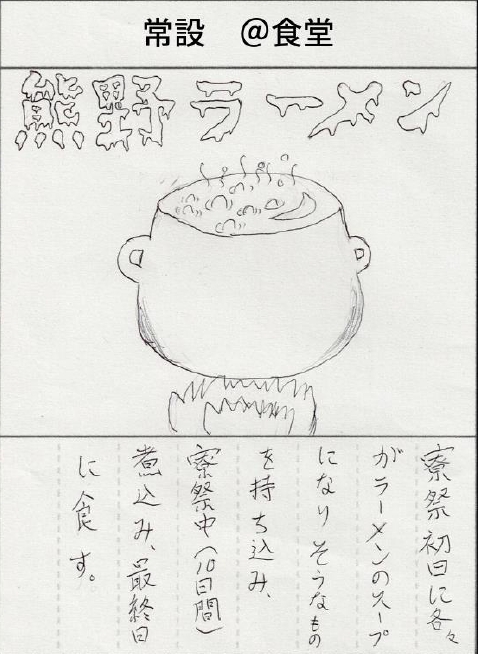 常設　@食堂
熊野ラーメン
寮祭初日に各々
がラーメンのスープ
になりそうなもの
を持ち込み、
寮祭中(10日間)
煮込み、最終日
に食す。